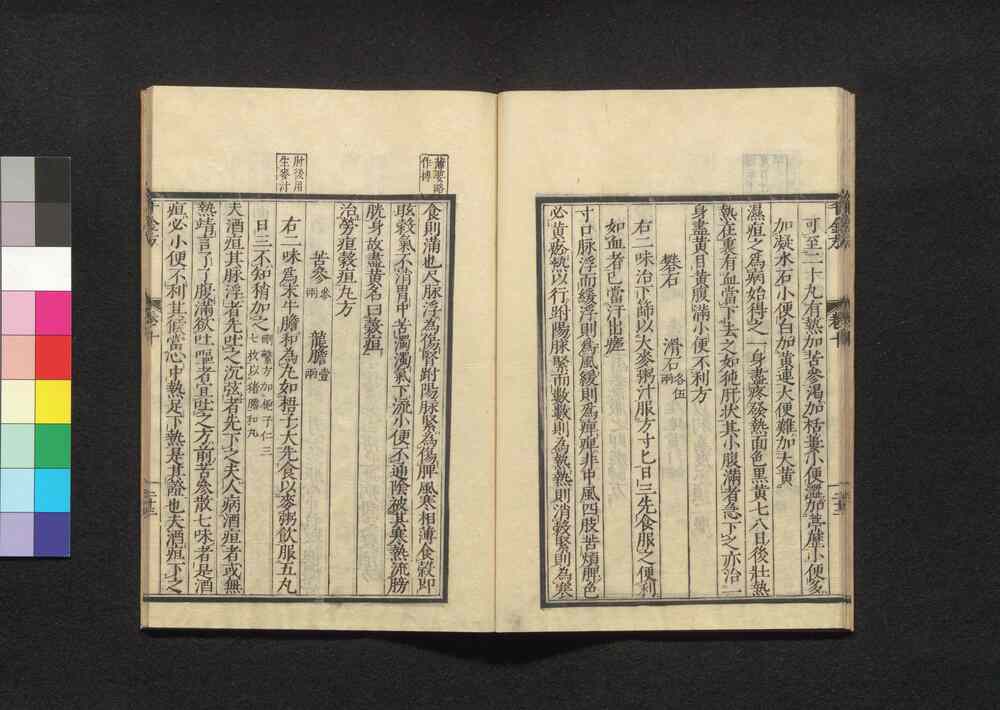 可至二十丸有熱加苦參渴加栝蔞小便澀加葶藶小便多
加凝水石小便白加黃連大便難加大黃
濕疸之為病始得之一身盡疼發熱面色黑黃七八日後壯熱
熱在裏有血當下去之如㹠肝狀其小腹滿者急下之亦治一
身盡黃目黃腹滿小便不利方
礬石 滑石各伍兩
右二味治下篩以大麥粥汁服方寸匕日三先食服之便利
如血者已當汗出瘥
寸口脉浮而緩浮則為風緩則為痹痹非中風四肢苦煩脾色
必黃瘀熱以行趺陽脉緊而數數則為熱熱則消穀緊則為寒
食則滿也尺脉浮為傷腎趺陽脉緊為傷脾風寒相薄食穀即
眩穀氣不消胃中苦濁濁氣下流小便不通陰被其寒熱流膀
胱身故盡黃名曰穀疸
治勞疸穀疸丸方
苦參叁兩 龍膽壹兩
右二味為末牛膽和為丸如梧子大先食以麥粥飲服五丸
日三不知稍加之刪繁方加梔子仁三
七枚以猪膽和丸
夫酒疸其脉浮者先吐之沉弦者先下之夫人病酒疸者或無
熱靖言了了腹滿欲吐嘔者宜吐之方前苦參散七味者是酒
疸必小便不利其候當心中熱足下熱是其證也夫酒疸下之
薄要略
作搏
肘後用
生麥汁
千金方
卷十
千金方
卷十